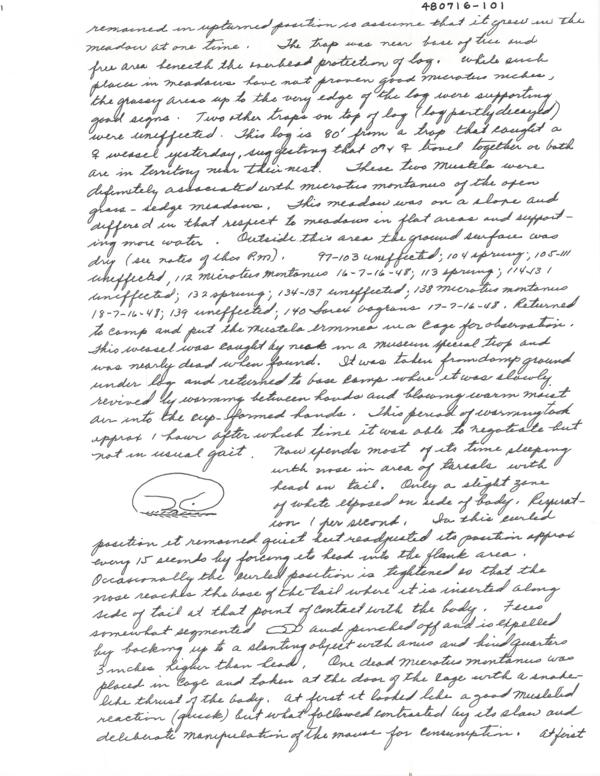 480716-101
remained in upturned position is assume that it grew in the
meadow at one time. The trap was near base of tree and
free area beneath the overhead protection of log. While such
places in meadows have not proven good microtus niches,
the grassy areas up to the very edge of the log were supporting
good signs. Two other traps on top of log (log partly decayed)
were uneffected. This log is 80' from a trap that caught a
♀ weasel yesterday, suggesting that ♂ & ♀ travel together or both
are in territory near their nest. These two Mustela were
definitely associated with microtus montanus of the open
grass-sedge meadows. This meadow was on a slope and
differed in that respect to meadows in flat areas and support-
ing more water. Outside this area the ground surface was
dry (see notes of this P.M). 97-103 uneffected; 104 sprung; 105-111
uneffected, 112 Microtus montanus 16-7-16-48; 113 sprung; 114-131
uneffected; 132 sprung; 134-137 uneffected; 138 Microtus montanus
18-7-16-48; 139 uneffected; 140 Sorex vagrans 17-7-16-48. Returned
to camp and put the Mustela ermmea in a cage for observation.
This weasel was caught by neck in a museum special trap and
was nearly dead when found. It was taken from damp ground
under log and returned to base camp where it was slowly
revived by warming between hands and blowing warm moist
air into the cup-formed hands. This period of warming took
approx 1 hour after which time it was able to negotiate but
not in usual gait. Now spends most of its time sleeping
with nose in area of tarsals with
head on tail. Only a slight zone
of white exposed on side of body. Respirat-
ion 1 per second. In this curled
position it remained quiet but readjusted its position approx
every 15 seconds by forcing its head into the flank area.
Occasionally the curled position is tightened so that the
nose reaches the base of the tail where it is inserted along
side of tail at that point of contact with the body. Feces
somewhat segmented and pinched off and is expelled
by backing up to a slanting object with anus and hind quarters
3 inches higher than head. One dead Microtus montanus was
placed in cage and taken at the door of the cage with a snake-
like thrust of the body. At first it looked like a good Mustelid
reaction (quick) but what followed contrasted by its slow and
deliberate manipulation of the mouse for consumption. At first